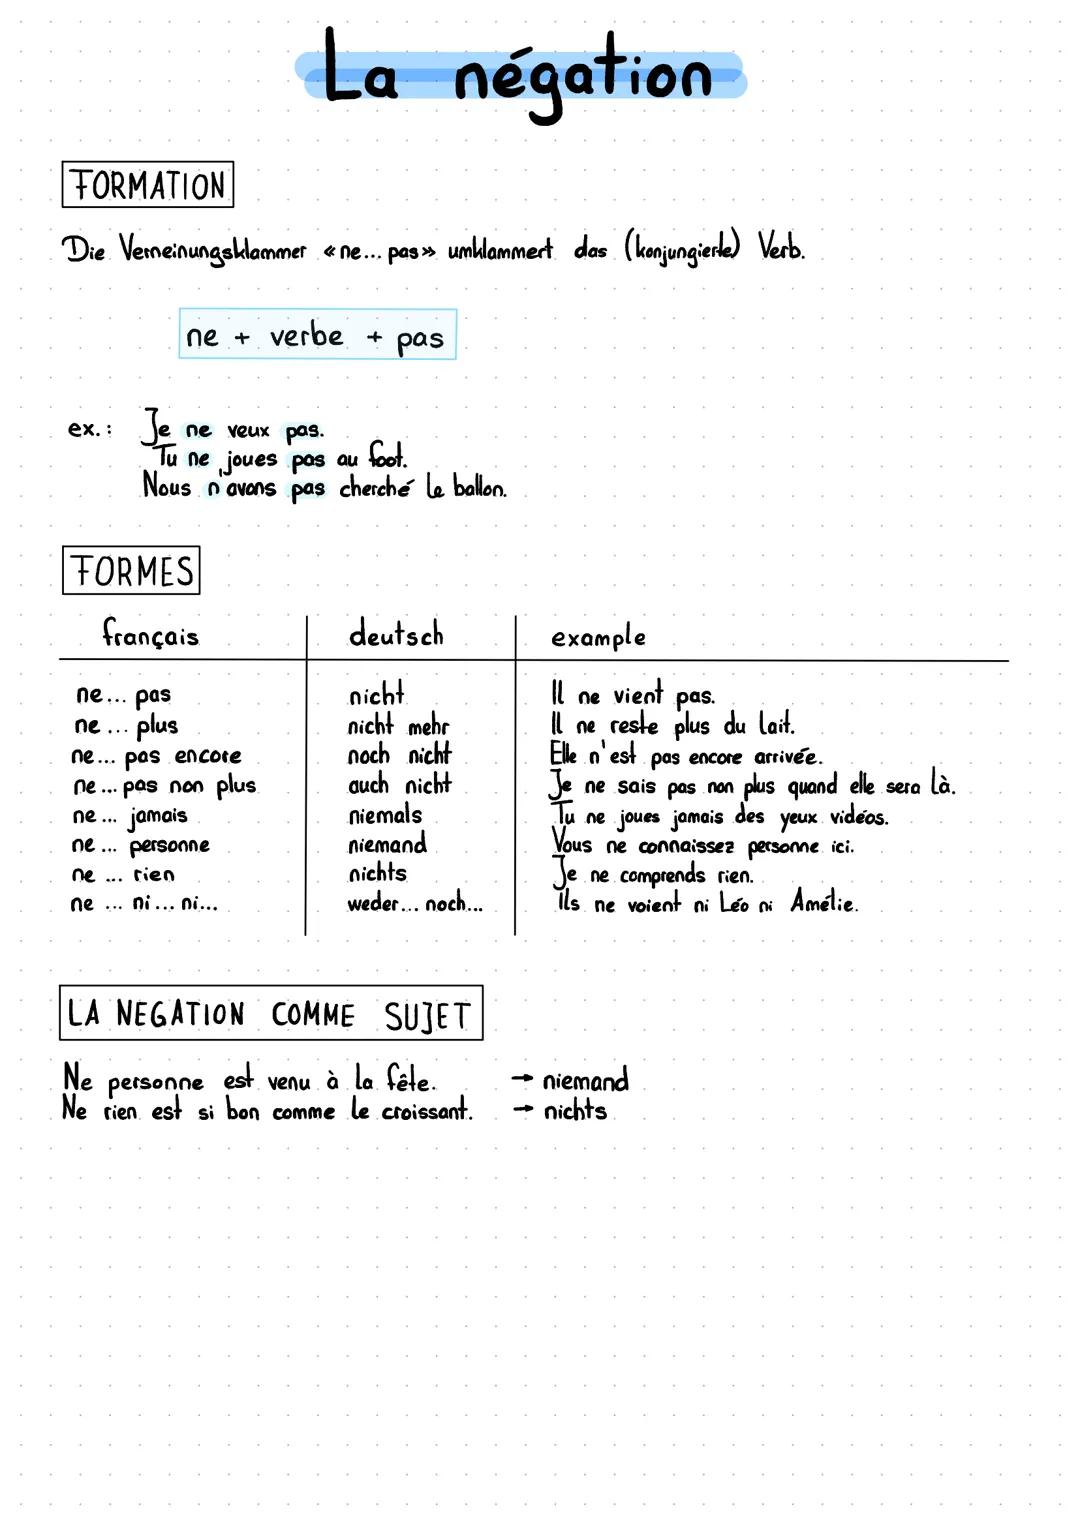 La négation
FORMATION
Die Verneinungsklammer «ne... pas» umklammert das (konjungierte) Verb.
ne + verbe + pas
ex.: Je ne veux pas.
Tu ne joues pas au foot.
Nous n'avons pas cherché le ballon.
FORMES
français deutsch example
ne... pas nicht Il ne vient pas.
ne ... plus nicht mehr Il ne reste plus du lait.
ne... pas encore noch nicht Elle n'est pas encore arrivée.
ne ... pas non plus auch nicht Je ne sais pas non plus quand elle sera là.
ne ... jamais niemals Tu ne joues jamais des yeux vidéos.
ne ... personne niemand Vous ne connaissez personne ici.
ne ... rien nichts Je ne comprends rien.
ne ... ni... ni... weder... noch... Ils ne voient ni Léo ni Amélie.
LA NEGATION COMME SUJET
Ne personne est venu à la fête. → niemand
Ne rien est si bon comme le croissant. → nichts